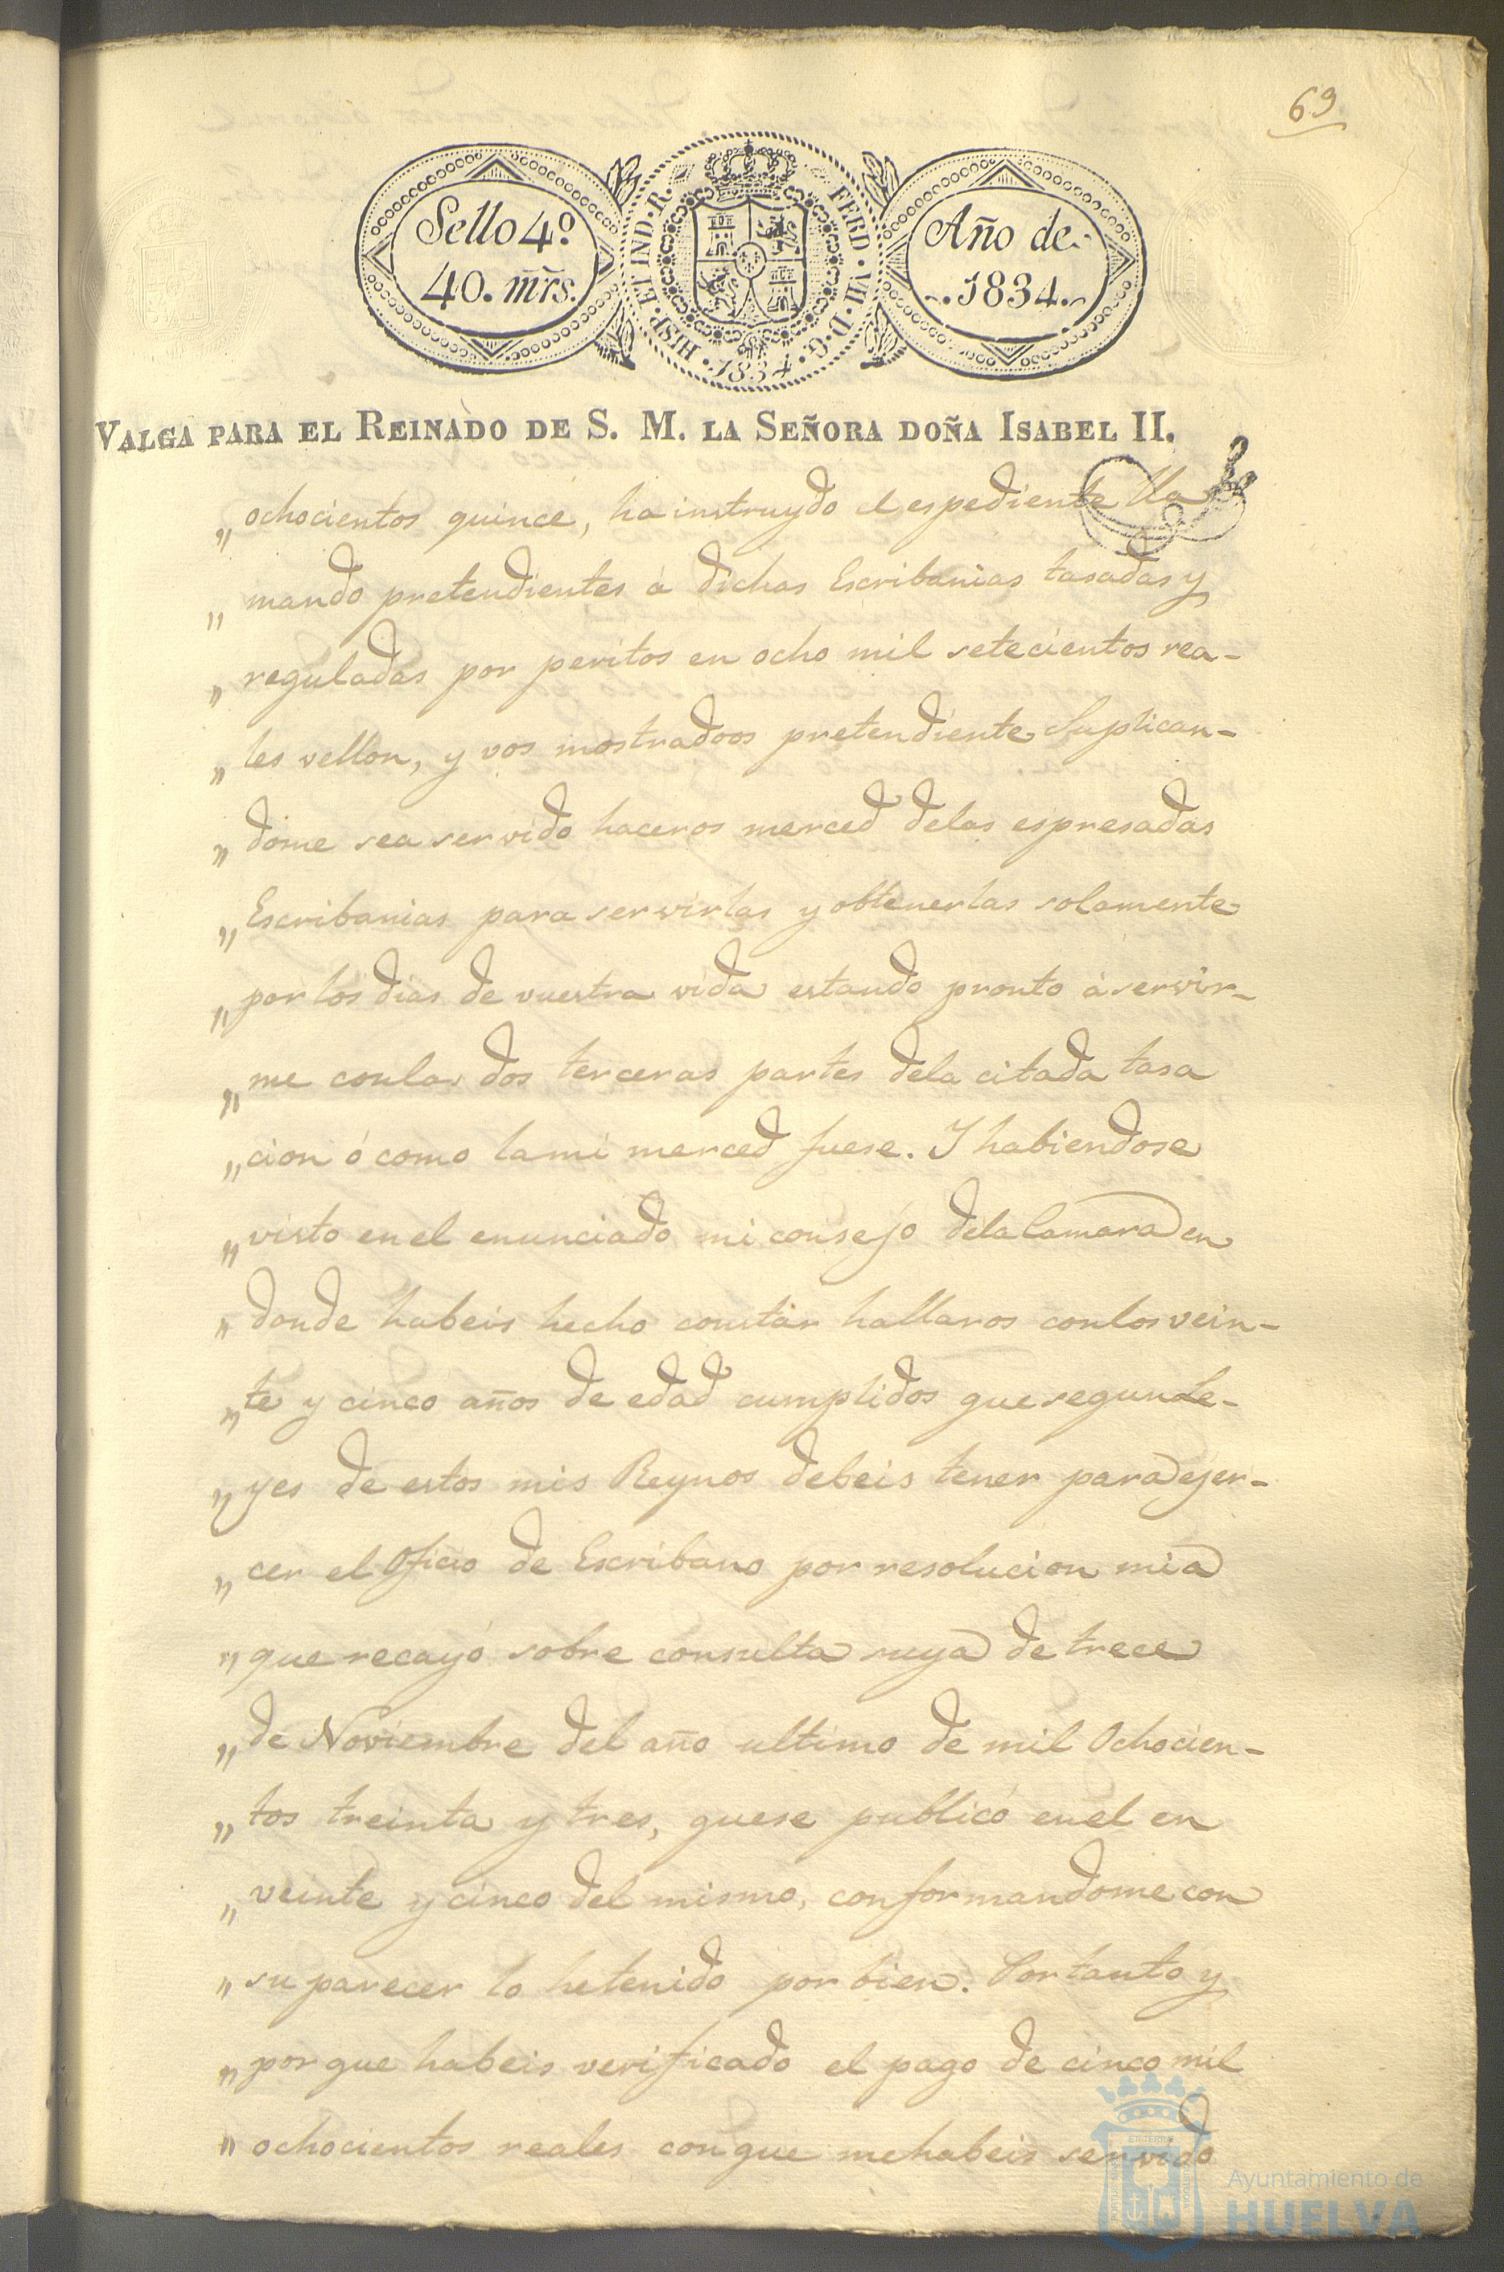 69
Sello 4º
40. mrs.
HISP · ET IND · R. FERD · VII · D · G · 1834 ·
Año de
1834.
VALGA PARA EL REINADO DE S. M. LA SEÑORA DOÑA ISABEL II.
„ ochocientos quince, ha instruydo el espediente lla
„ mando pretendientes á dichas Escribanias tasadas y
„ reguladas por peritos en ocho mil setecientos rea-
„ les vellon, y vos mostradoos pretendiente Suplican-
„ dome sea servido haceros merced delas espresadas
„ Escribanias para servirlas y obtenerlas solamente
„ por los dias de vuestra vida estando pronto á servir-
„ me conlas dos terceras partes dela citada tasa
„ cion ó como lami merced fuese. Y habiendose
„ visto en el enunciado mi consejo dela Camara en
„ donde habeis hecho constár hallaros conlos vein-
„ te y cinco años de edad cumplidos que segun Le-
„ yes de estos mis Reynos debeis tener para ejer-
„ cer el Oficio de Escribano por resolucion mia
„ que recayó sobre consulta suya de trece
„ de Noviembre del año ultimo de mil Ochocien-
„ tos treinta y tres, quese publicó enel en
„ veinte y cinco del mismo, conformandome con
„ su parecer lo hetenido por bien. Portanto y
„ porque habeis verificado el pago de cinco mil
„ ochocientos reales conque mehabeis servido
Ayuntamiento de
HUELVA